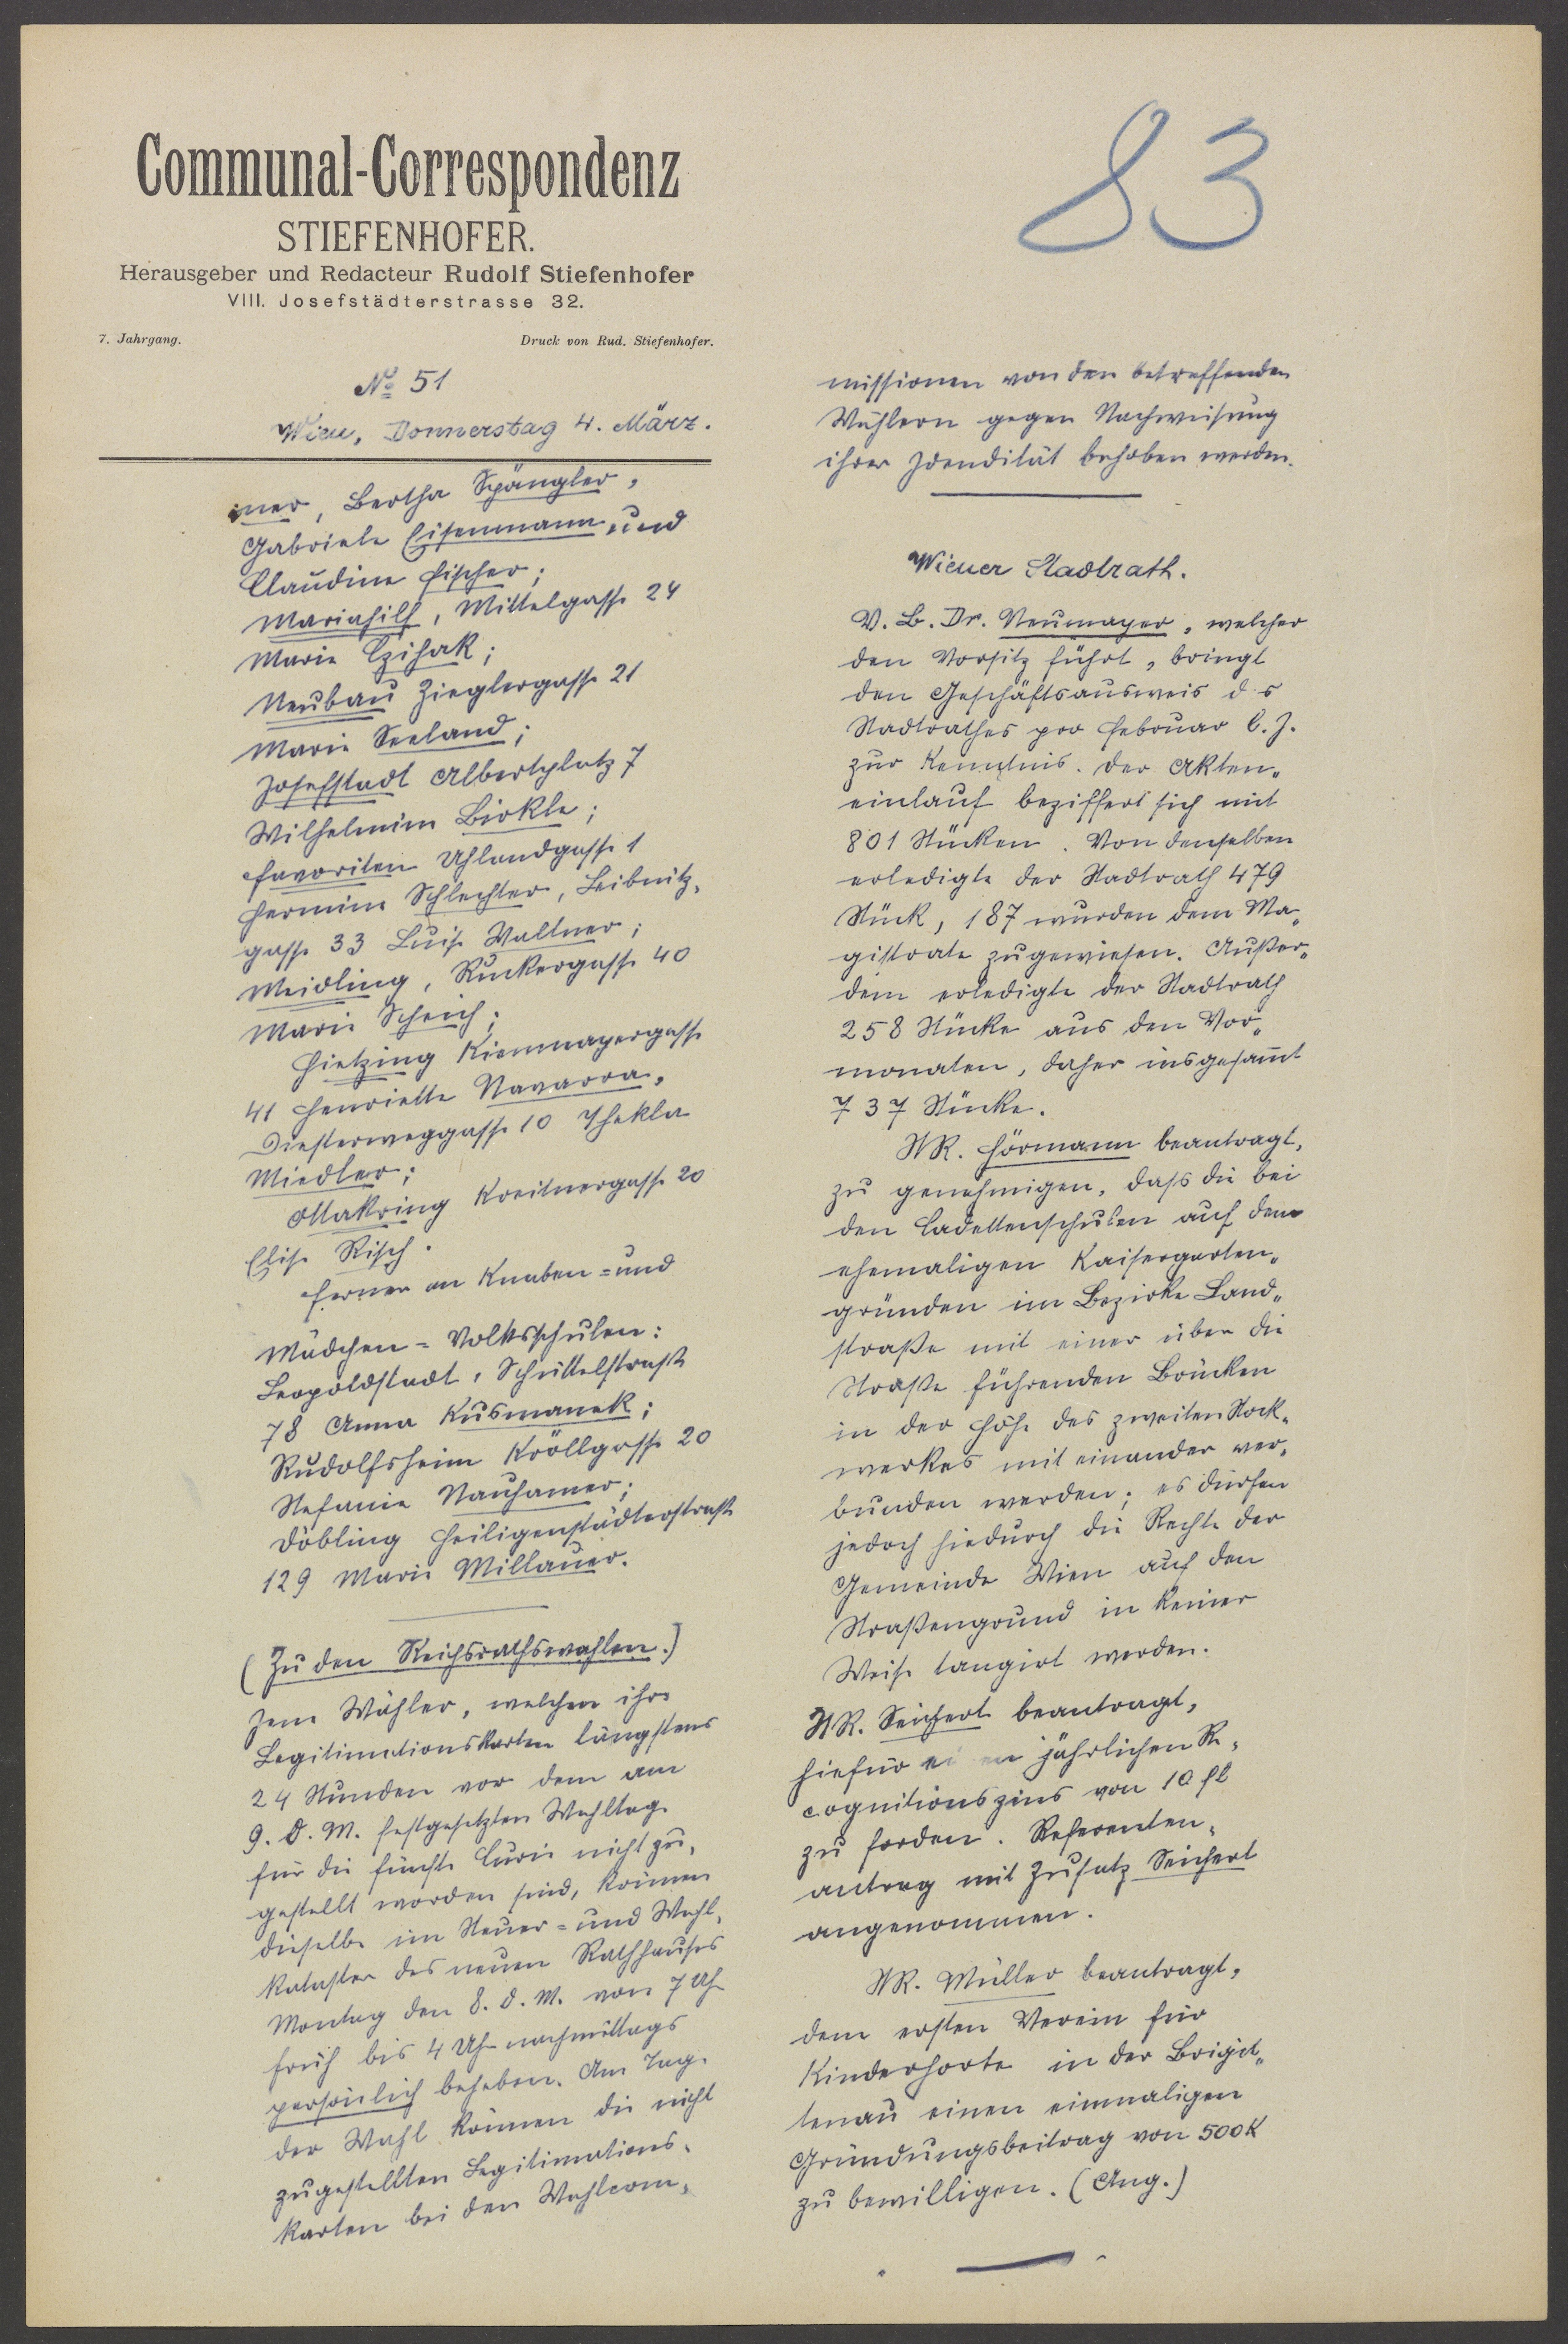 Communal-Correspondenz
STIEFENHOFER.
Herausgeber und Redacteur Rudolf Stiefenhofer
VIII. Josefstädterstrasse 32.
7. Jahrgang. Druck von Rud. Stiefenhofer.
83
No 51
Wien, Donnerstag 4. März.
mer, Bertha Spängler,
Gabriele Eisenmann und
Claudine Fischer;
Mariahilf, Mittelgasse 24
Marie Czihak;
Neubau Zieglergasse 21
Marie Seeland;
Josefstadt Albertplatz 7
Wilhelmine Birkle;
Favoriten Uhlandgasse 1
Hermine Schlechter, Leibnitz-
gasse 33 Luise Wallner;
Meidling, Ruckergasse 40
Marie Scheich;
Hietzing Kienmayergasse
41 Henriette Navarra,
Diesterweggasse 10 Thekla
Miedler;
Ottakring Kreitnergasse 20
Elise Risch.
Ferner an Knaben- und
Mädchen-Volksschulen:
Leopoldstadt, Schüttelstraße
78 Anna Kusmanek;
Rudolfsheim Kröllgasse 20
Stefanie Neuhamer;
Döbling Heiligenstädterstraße
129 Marie Millauer.
(Zu den Reichsrathswahlen.)
Jene Wähler, welchen ihre
Legitimationskarten längstens
24 Stunden vor dem am
9. d. M. festgesetzten Wahltage
für die fünfte Curie nicht zu-
gestellt worden sind, können
dieselbe im Steuer- und Wahl-
kataster des neuen Rathhauses
Montag den 8. d. M. von 7 Uhr
früh bis 4 Uhr nachmittags
persönlich beheben. Am Tage
der Wahl können die nicht
zugestellten Legitimations-
karten bei den Wahlcom-
missionen von den betreffenden
Wählern gegen Nachweisung
ihrer Idendität behoben werden.
Wiener Stadtrath.
V. B. Dr. Neumayer, welcher
den Vorsitz führt, bringt
den Geschäftsausweis d s
Stadtrathes pro Februar l. J.
zur Kenntnis. Der Akten-
einlauf beziffert sich mit
801 Stücken. Von denselben
erledigte der Stadtrath 479
Stück, 187 wurden dem Ma-
gistrate zugewiesen. Außer-
dem erledigte der Stadtrath
258 Stücke aus den Vor-
monaten, daher insgesamt
737 Stücke.
StR. Hörmann beantragt,
zu genehmigen, dass die bei
den Cadettenschulen auf dem
ehemaligen Kaisergarten-
gründen im Bezirke Land-
straße mit einer über die
Straße führenden Brücken
in der Höhe des zweiten Stock-
werkes mit einander ver-
bunden werden; es dürfen
jedoch hiedurch die Rechte der
Gemeinde Wien auf den
Straßengrund in keiner
Weise tangirt werden.
StR. Seichert beantragt,
hiefür ei en jährlichen Re-
cognitionszins von 10 fl
zu fordern. Referenten-
antrag mit Zusatz Seichert
angenommen.
StR. Müller beantragt,
dem ersten Verein für
Kinderhorte in der Brigit-
tenau einen einmaligen
Gründungsbeitrag von 500 K
zu bewilligen. (Ang.)